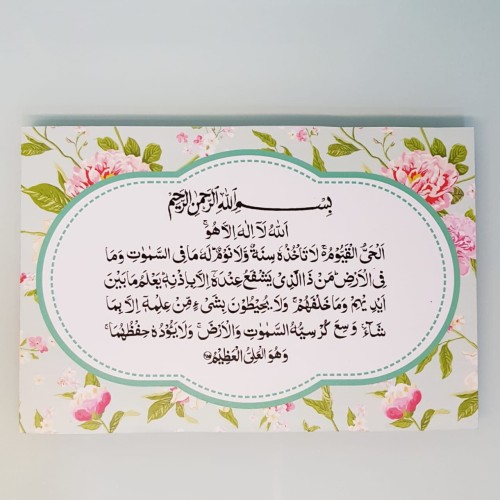 بِسْمِ اللهِ الرَّحْمٰنِ الرَّحِيْمِ
اَللهُ لَآ اِلٰهَ اِلَّا هُوَۚ
اَلْحَيُّ الْقَيُّوْمُ ۚ لَا تَأْخُذُهٗ سِنَةٌ وَّلَا نَوْمٌ ؕ لَهٗ مَا فِى السَّمٰوٰتِ وَمَا
فِى الْاَرْضِ ؕ مَنْ ذَا الَّذِىْ يَشْفَعُ عِنْدَهٗٓ اِلَّا بِاِذْنِهٖ ؕ يَعْلَمُ مَا بَيْنَ
اَيْدِيْهِمْ وَمَا خَلْفَهُمْ ۚ وَلَا يُحِيْطُوْنَ بِشَىْءٍ مِّنْ عِلْمِهٖٓ اِلَّا بِمَا
شَآءَ ۚ وَسِعَ كُرْسِيُّهُ السَّمٰوٰتِ وَالْاَرْضَ ۚ وَلَا يَؤُدُهٗ حِفْظُهُمَا ۚ
وَهُوَ الْعَلِىُّ الْعَظِيْمُ